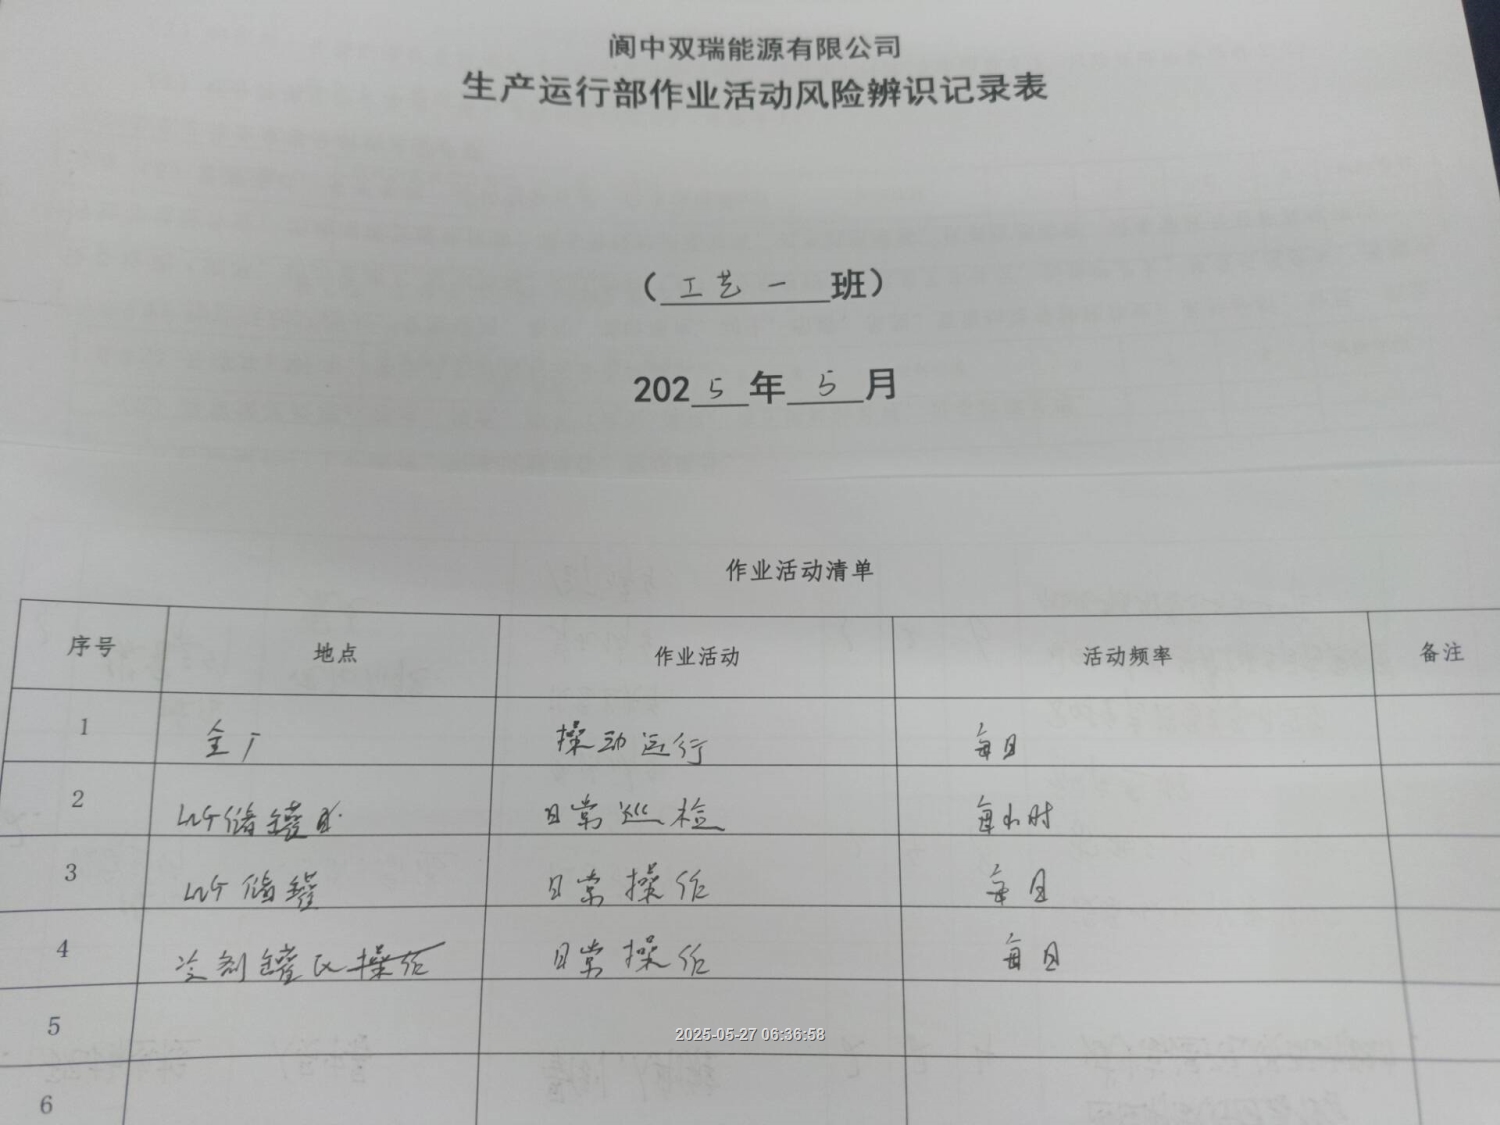 阆中双瑞能源有限公司
生产运行部作业活动风险辨识记录表
（工艺一班）
2025年5月
作业活动清单
序号 地点 作业活动 活动频率 备注
1 全厂 操动运行 每日
2 LNG储罐区 日常巡检 每小时
3 LNG储罐 日常操作 每日
4 冷剂罐区操作 日常操作 每日
5
2025-05-27 06:36:58
6